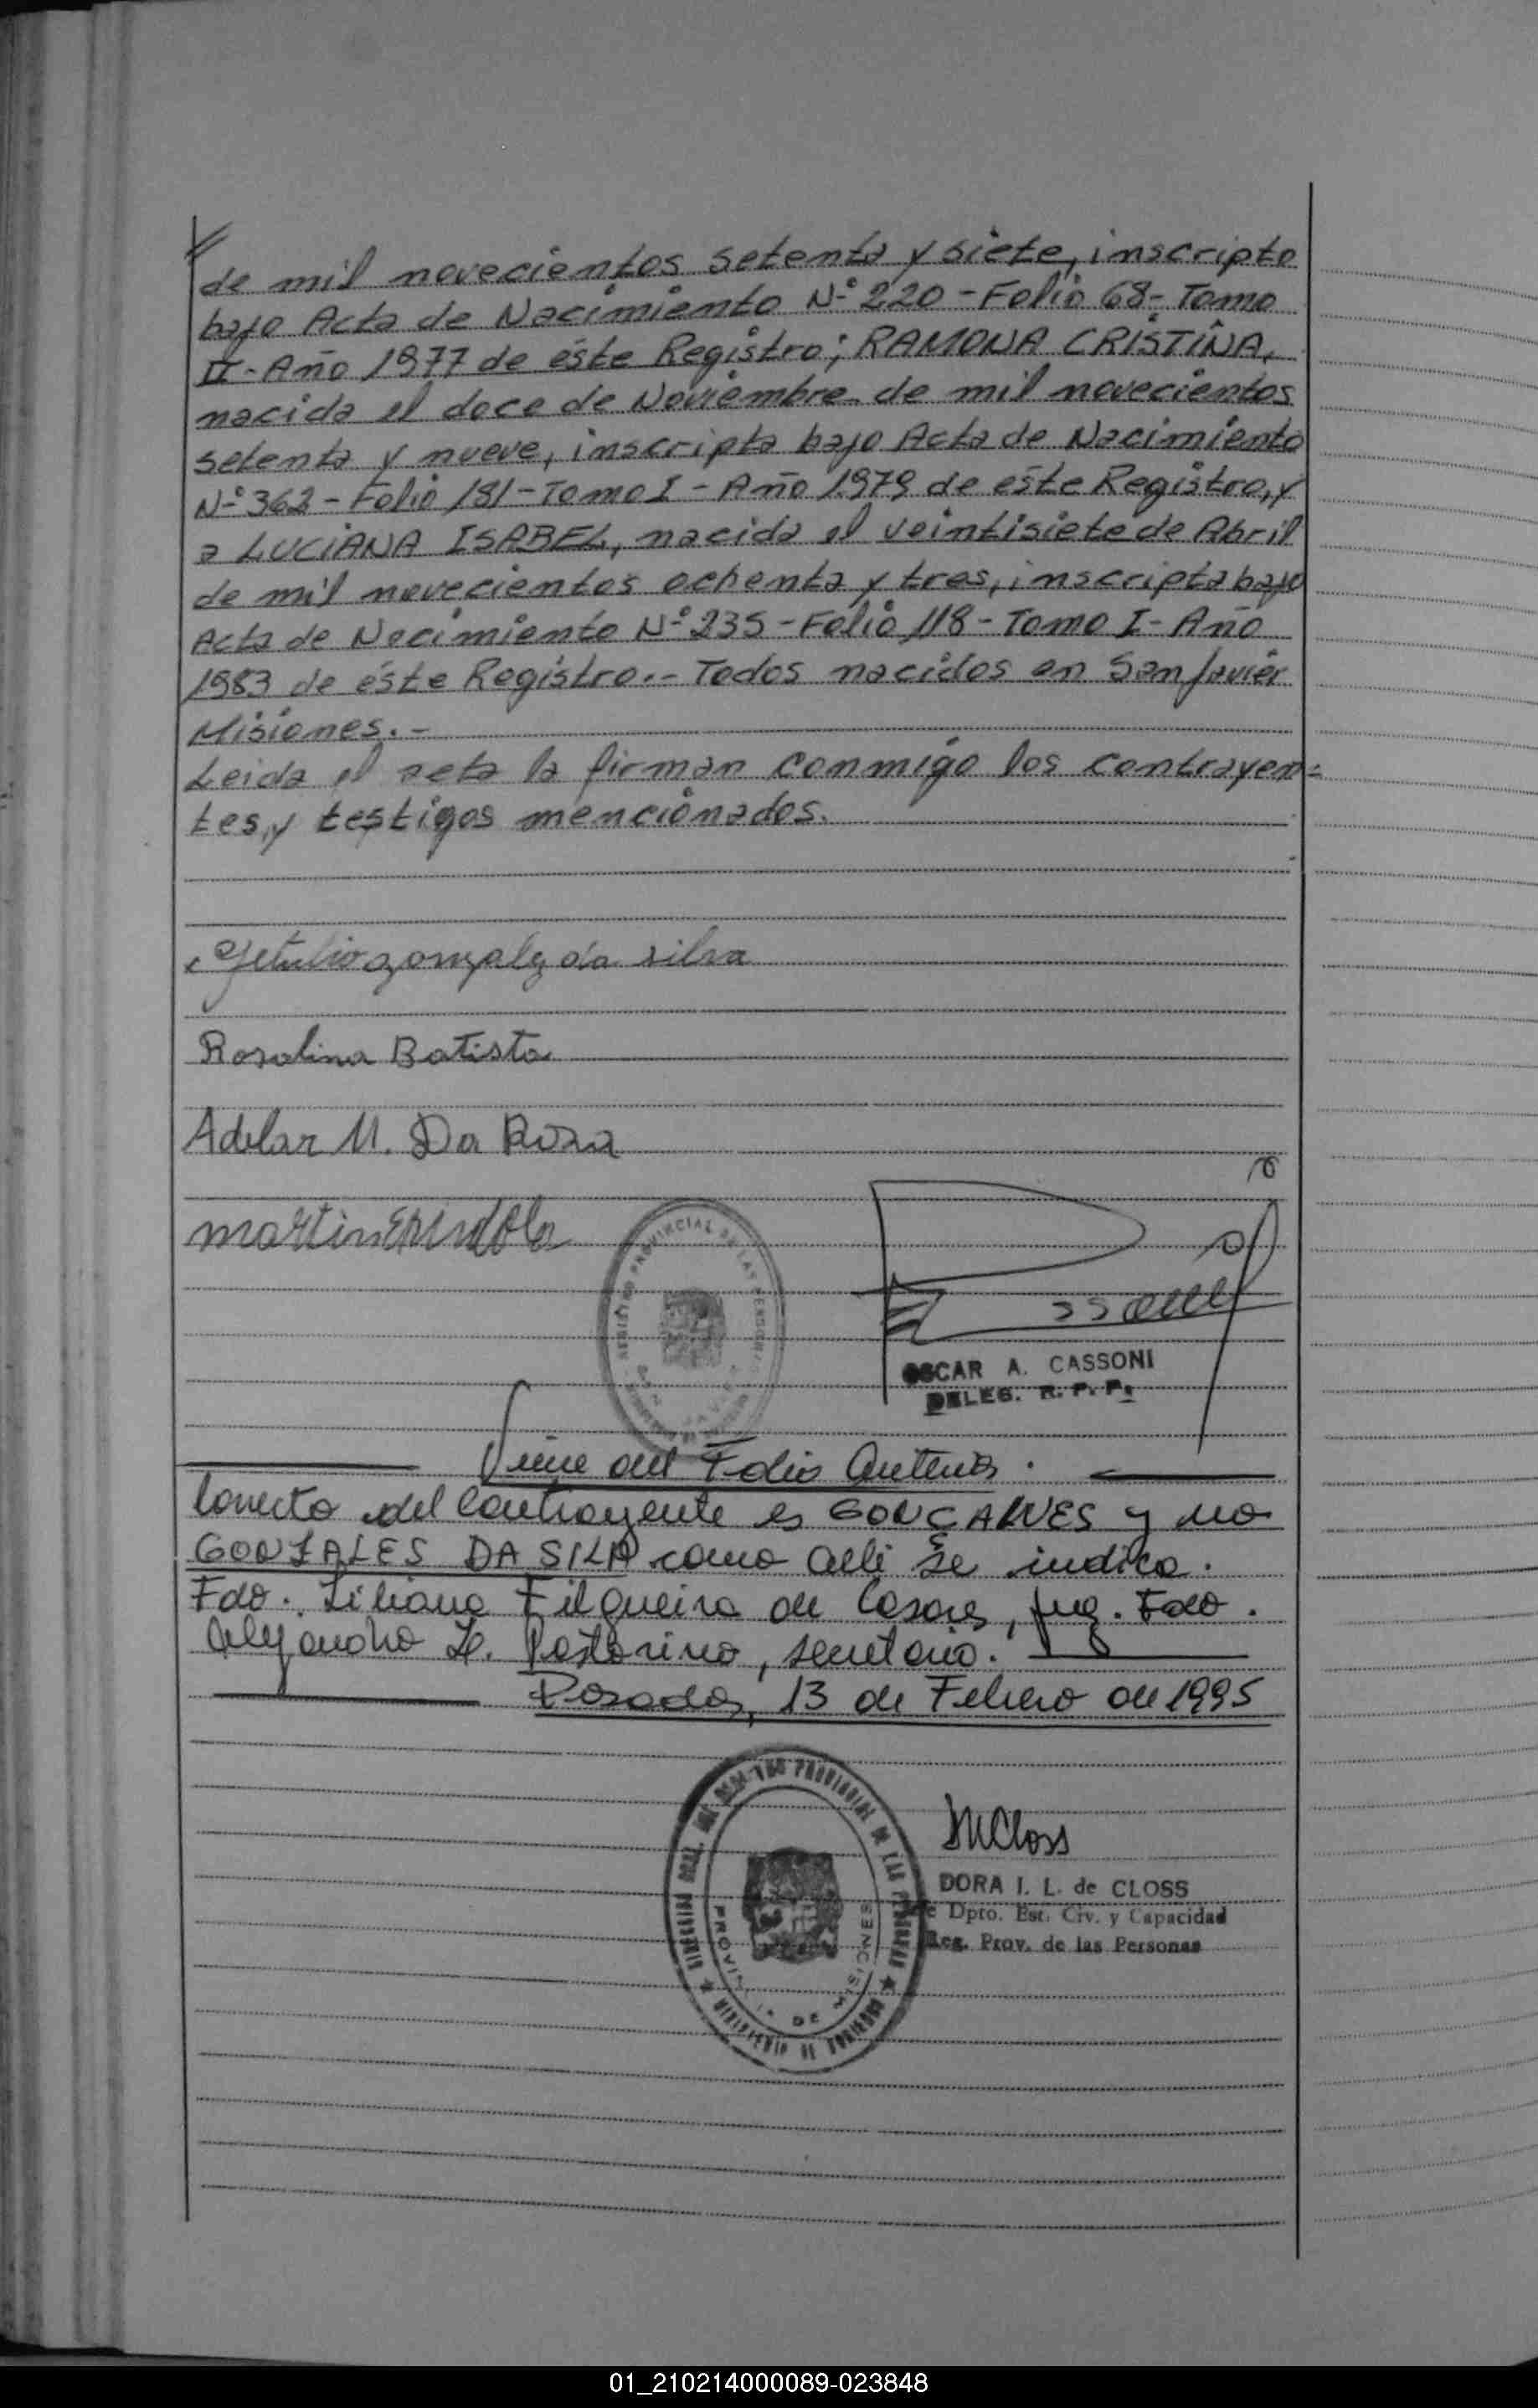 de mil novecientos setenta y siete, inscripto
bajo Acta de Nacimiento Nº 220 - Folio 68 - Tomo
II - Año 1977 de éste Registro; RAMONA CRISTINA,
nacida el doce de Noviembre de mil novecientos
setenta y nueve, inscripta bajo Acta de Nacimiento
Nº 362 - Folio 181 - Tomo I - Año 1979 de éste Registro, y
a LUCIANA ISABEL, nacida el veintisiete de Abril
de mil novecientos ochenta y tres, inscripta bajo
Acta de Nacimiento Nº 235 - Folio 118 - Tomo I - Año
1983 de éste Registro.- Todos nacidos en San Javier
Misiones.-
Leida el acta la firman conmigo los contrayen=
tes, y testigos mencionados.
Getulio gonzalez da silva
Rosalina Batista
Adelar M. Da Roza
martin Espindola
OSCAR A. CASSONI
DELEG. R. P. P.
Viene del Folio Anterior.
Correcto del contrayente es GONÇALVES y no
GONZALES DA SILVA como alli se indica.
Fdo. Liliana Filgueira de Casares, Juez. Fdo.
Alejandro L. Pastorino, secretario.
Posadas, 13 de Febrero de 1995
REGISTRO PROVINCIAL DE LAS PERSONAS
PROVINCIA DE MISIONES
MINISTERIO DE GOBIERNO
DMCloss
DORA I. L. de CLOSS
Dpto. Est. Civ. y Capacidad
Reg. Prov. de las Personas
01_210214000089-023848